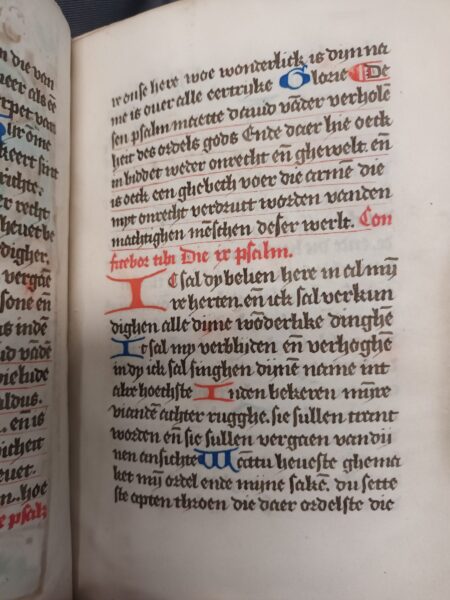 n die van
neer als ee
keert sint
richte.
er recht
heuet be
digher.
vergaē
sone eñ
is indē
ud vādē
aldus.
. eñ is
vicheit
euet.
n. hoe
e psalm
v onse here woe wonderlick is dijn na
me is ouer alle eertrijke Glorie De
sen psalm maecte dauid vāder verholē
heit des ordels gods Ende daer hie oeck
in biddet weder onrecht eñ ghewelt. eñ
is oeck een ghebeth voer die armē die
myt onrecht verdruct worden vanden
machtighen mēschen deser werlt. Con
fitebor tibi Die ix psalm.
Ic sal dy belien here in al myn
re herten. eñ ick sal verkun
dighen alle dijne wōderlike dinghē
Ic sal my verbliden eñ verhoghē
in dy ick sal singhen dijnē name int
alre hoechste Inden bekeren mijre
viande achter rugghe. sie sullen cranc
worden eñ sie sullen vergaen van dij
nen ansichte Wāttu heueste ghema
ket mij ordel ende mijne sakē. du sette
ste opten throen die daer ordelste die